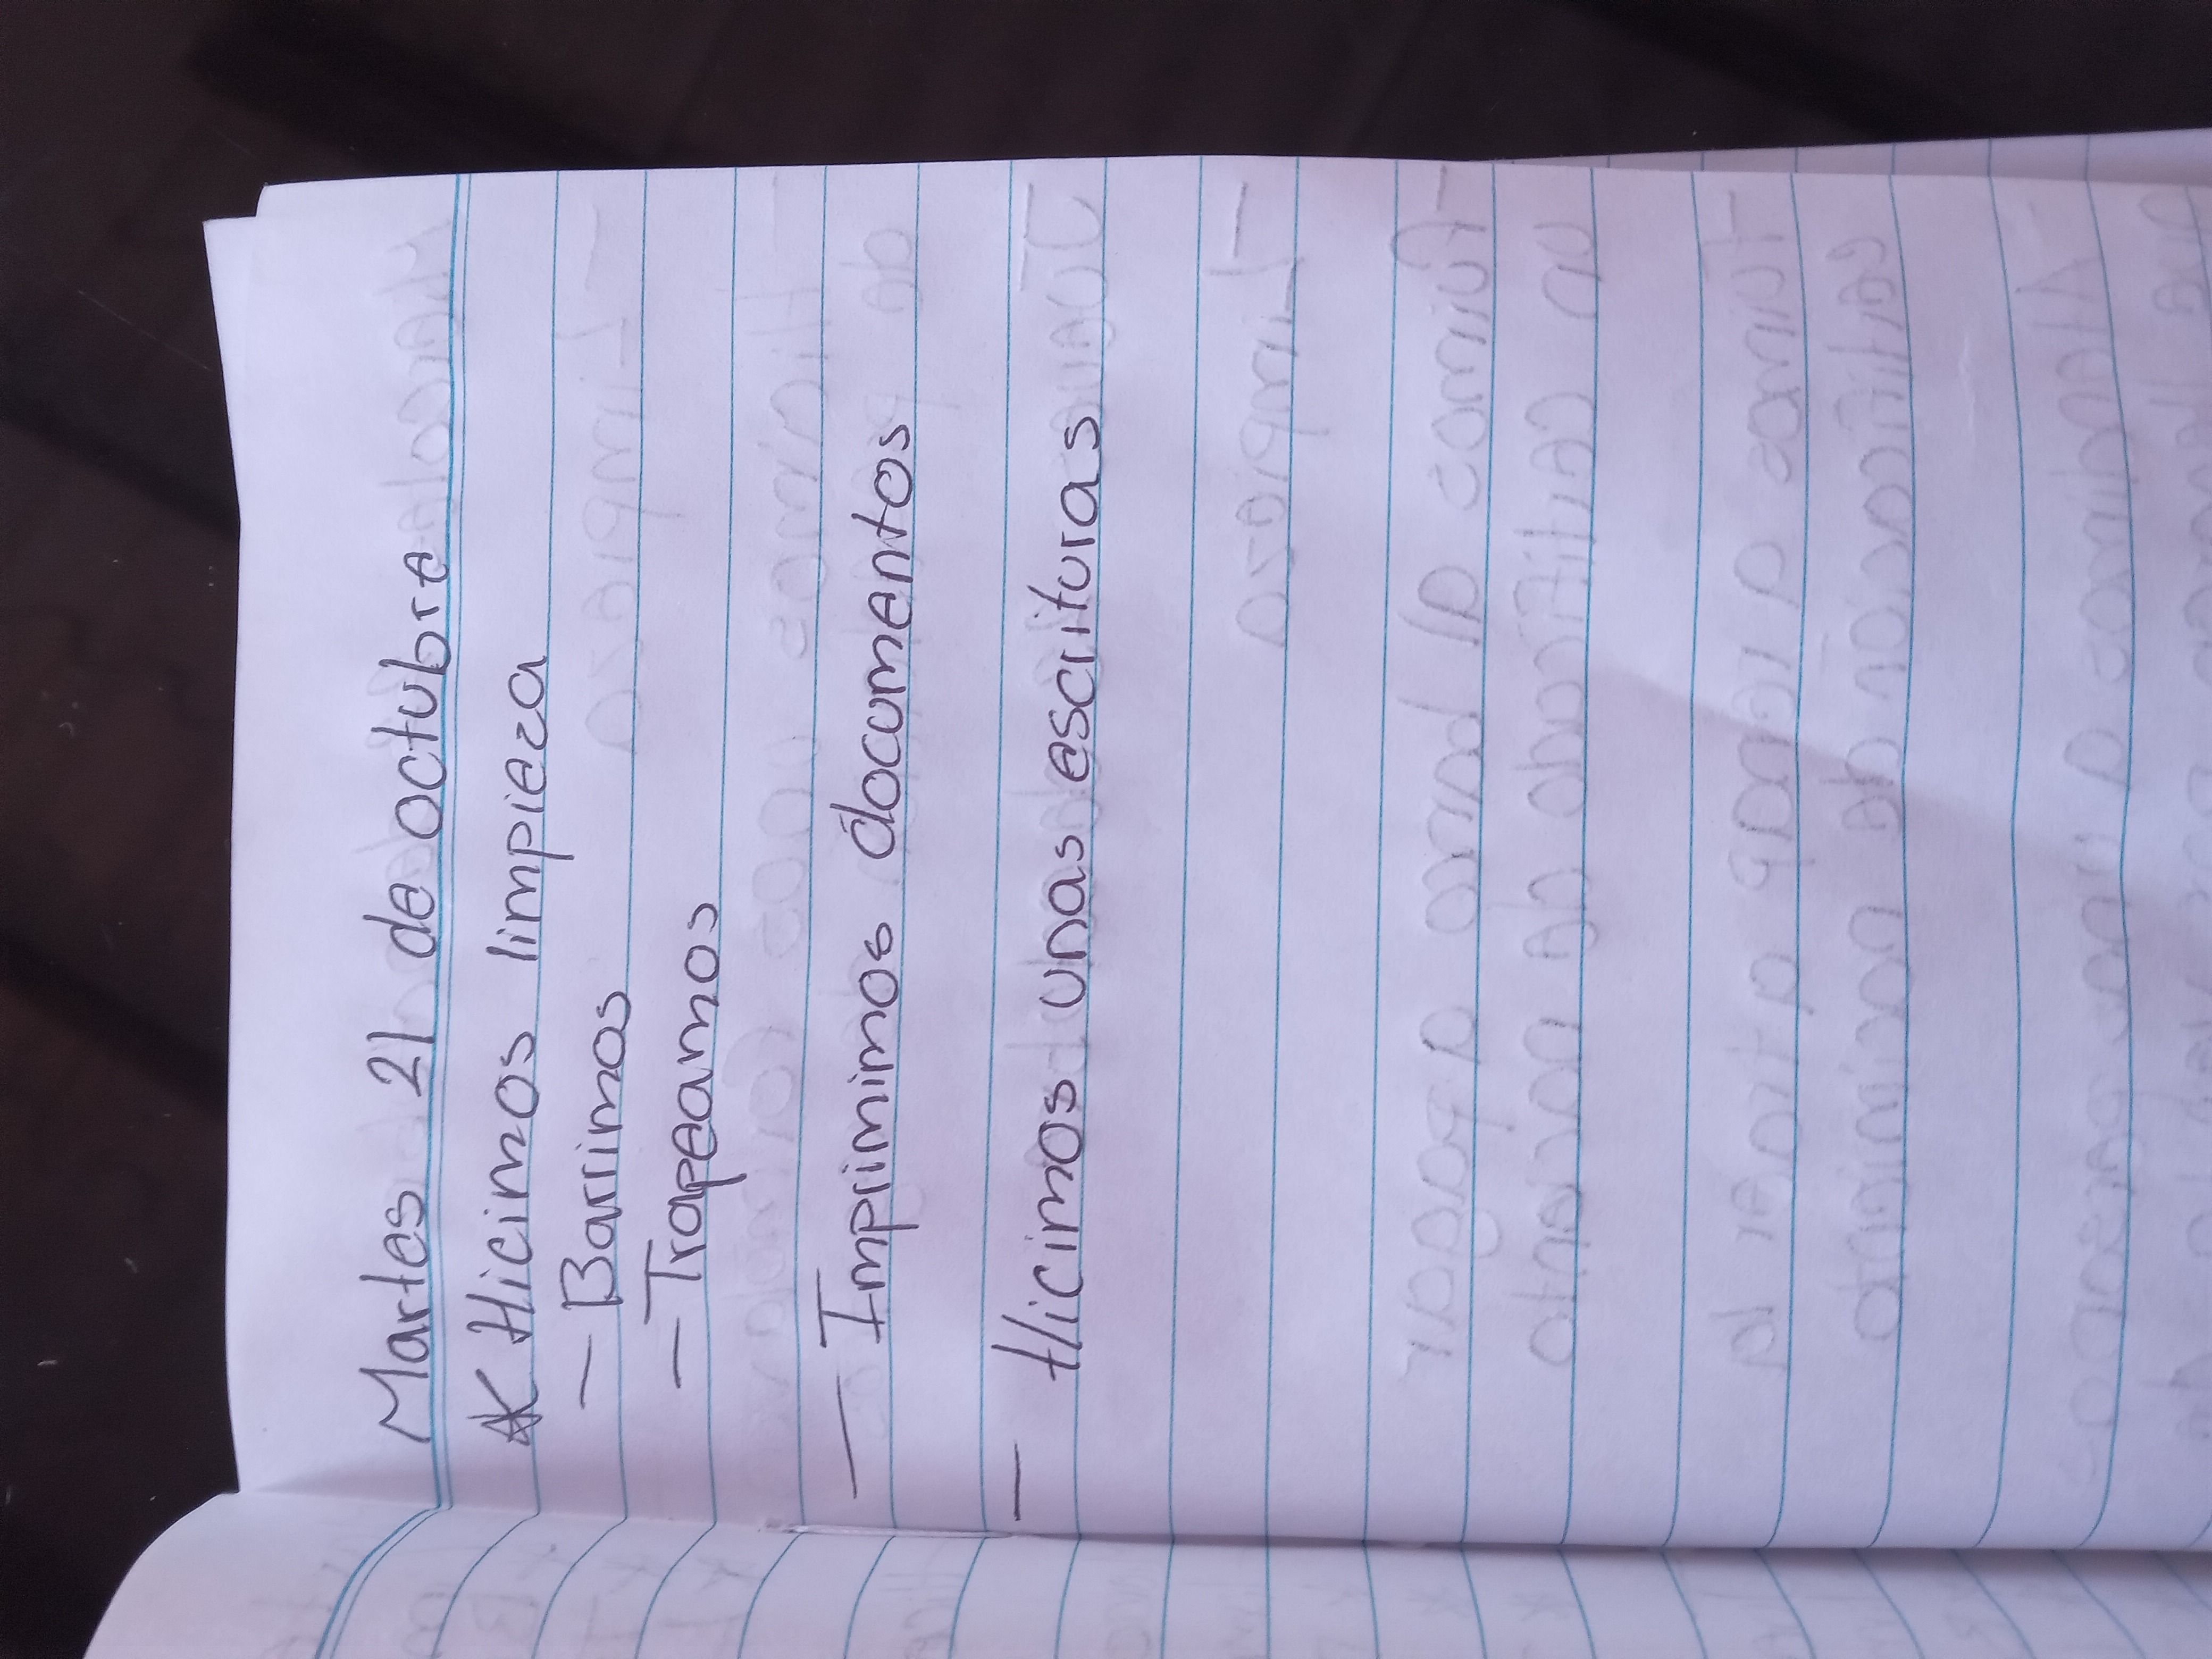 Martes 21 de octubre
* Hicimos limpieza
- Barrimos
- Trapeamos
- Imprimimos documentos
- Hicimos unas escrituras